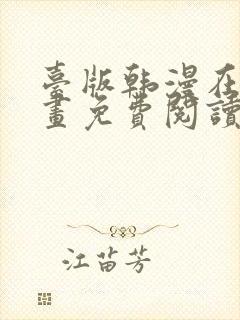 臺版韩漫在
畫免費閱讀
江苗芳